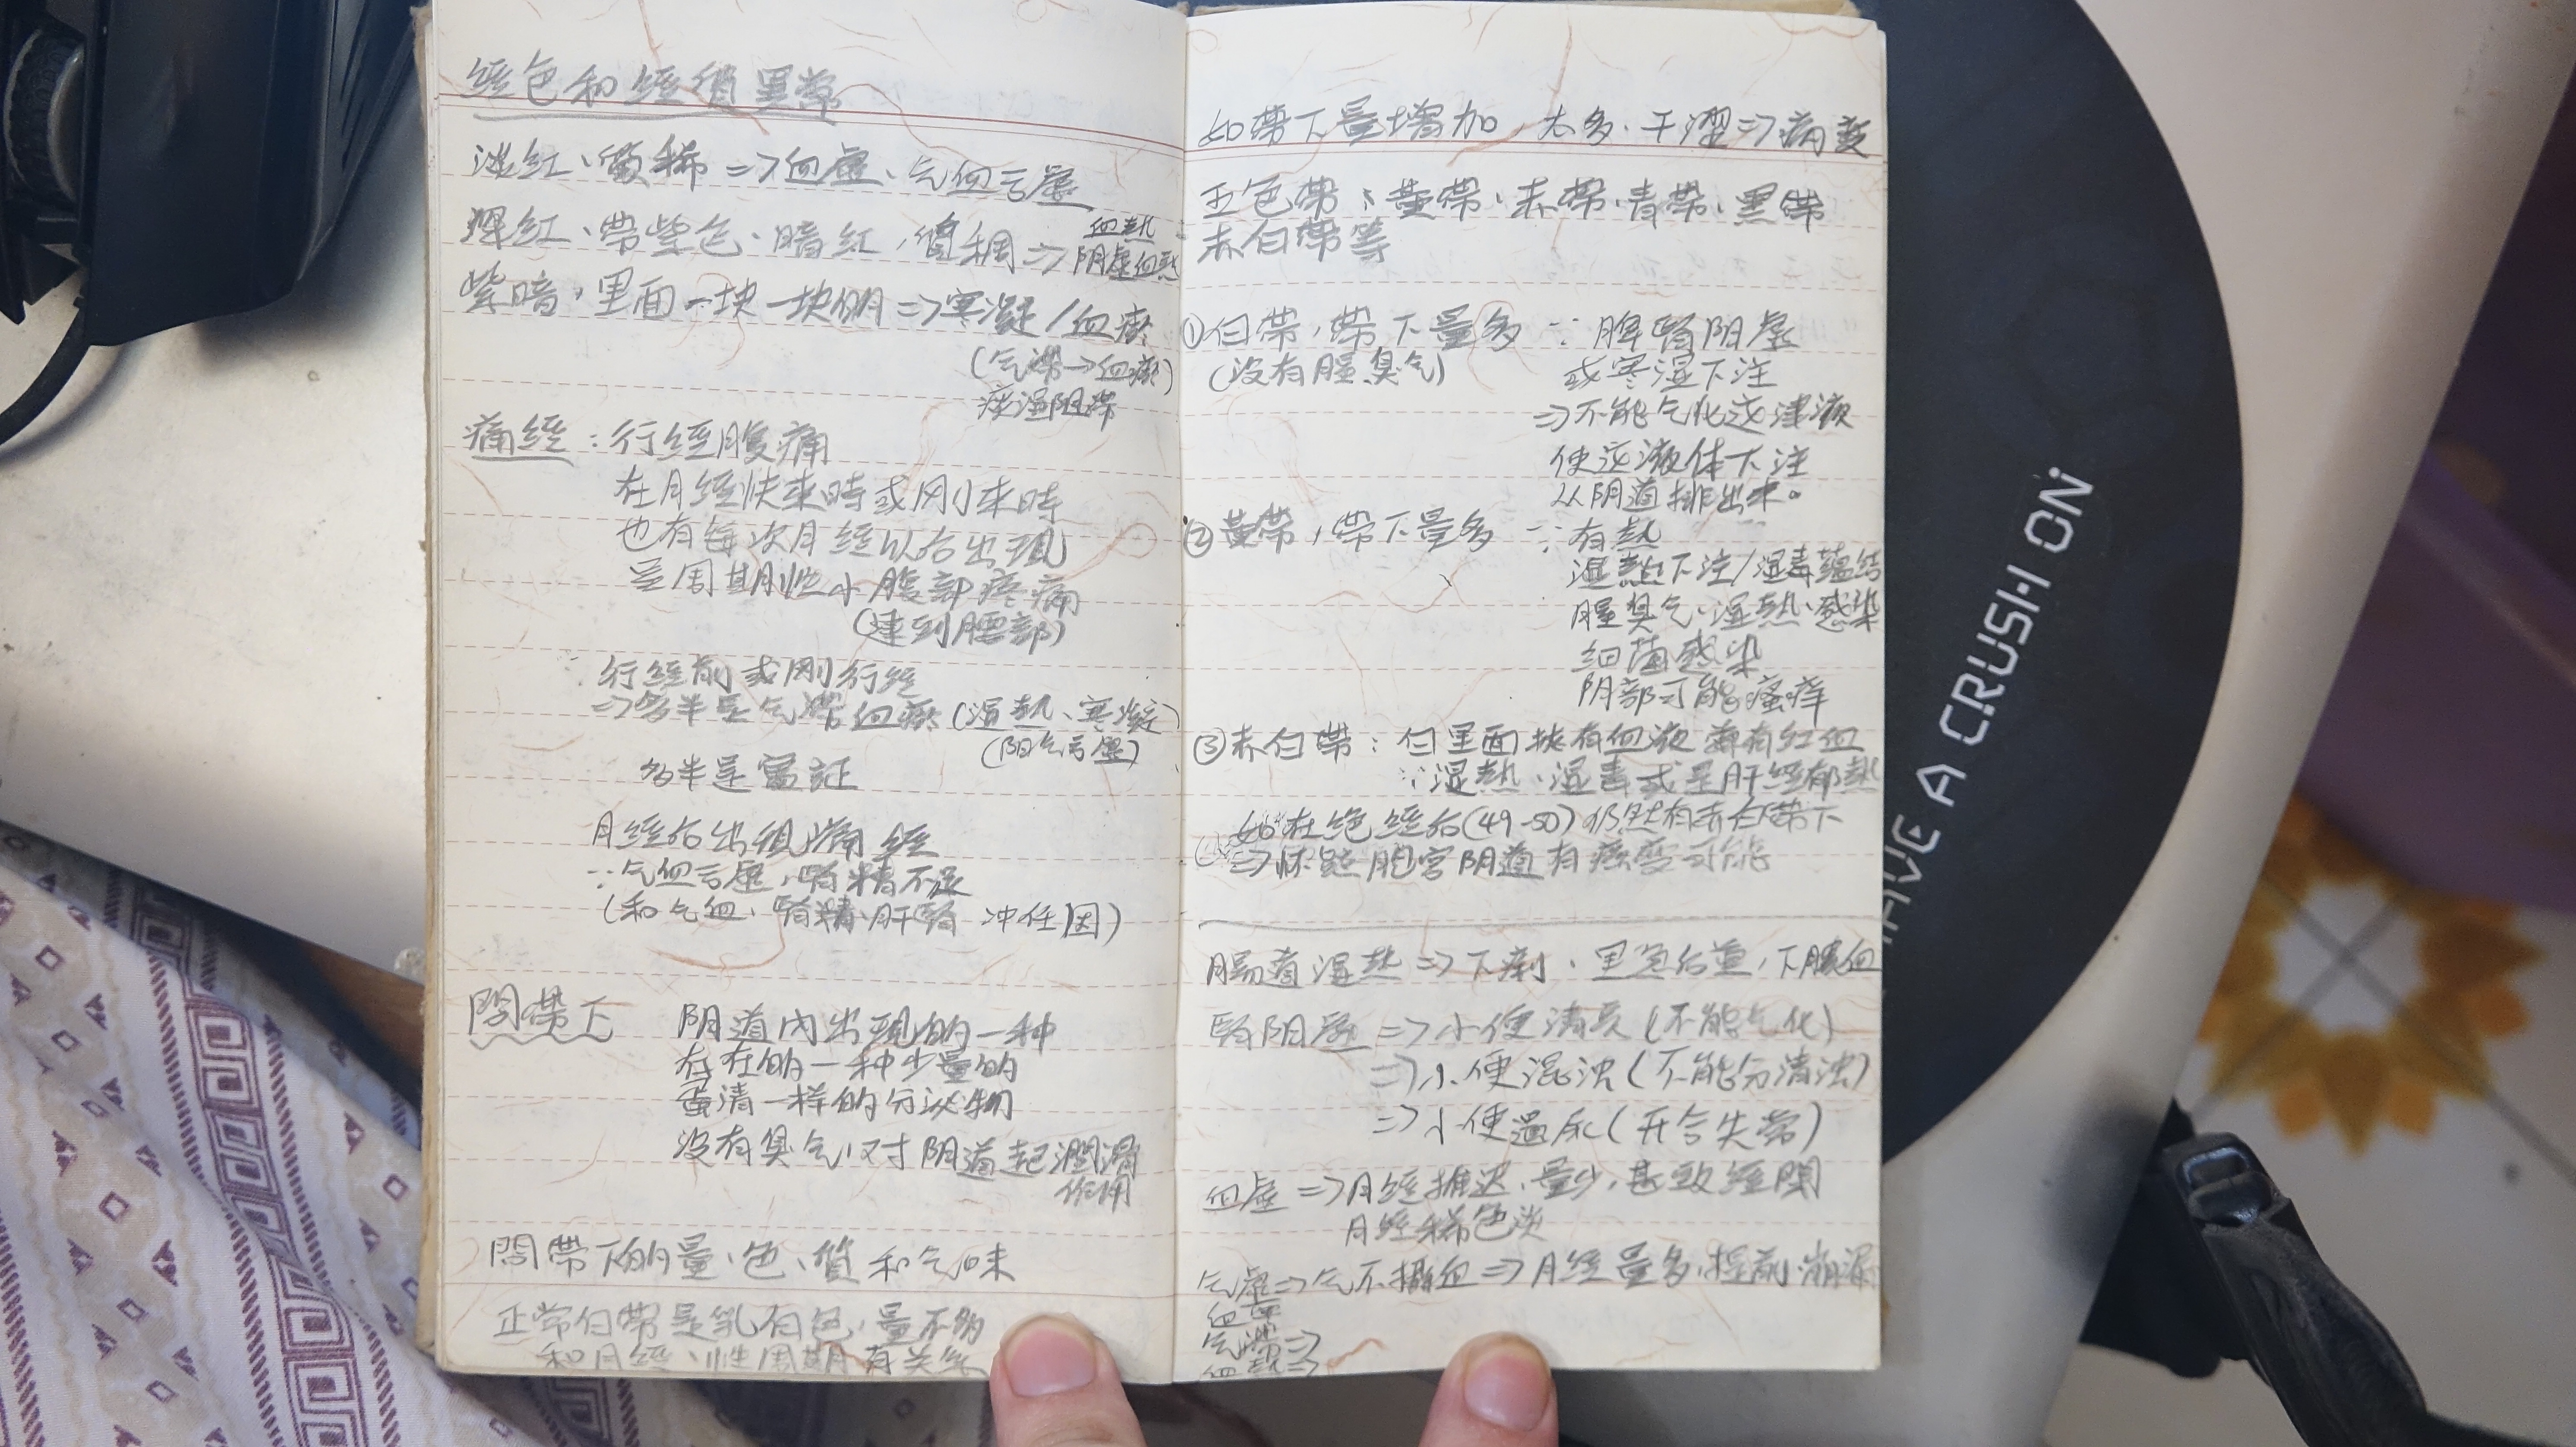 經色和經質異常
淡红、質稀 => 血虛、气血亏虛
深红、带紫色、暗红，質稠 => 血热
阴虛血热
紫暗，里面一块一块的 => 寒凝/血瘀
(气滞→血瘀)
痰湿阻滞
痛經：行經腹痛
在月經快來時或刚來時
也有每次月經以后出現
呈周期性小腹部疼痛
(連到腰部)
∵ 行經前或刚行經
=> 多半是气滞血瘀 (湿热、寒凝)
(阳气亏虛)
多半是實証
月經后出組痛經
∵ 气血亏虛，腎精不足
(和气血、腎精、肝腎 冲任因)
問帶下
阴道内出現的一种
存在的一种少量的
蛋清一样的分泌物
没有臭气，对阴道起潤滑
作用
問帶下的量、色、質和气味
正常白帶是乳白色，量不多
和月經、性周期有关系
如帶下量增加，太多、干澀 => 病变
五色帶、黃帶、赤帶、青帶、黑帶
赤白帶等
①白帶，帶下量多 ∵ 脾腎阳虛
(没有腥臭气)
或寒湿下注
=> 不能气化这津液
使这液体下注
从阴道排出來。
②黃帶，帶下量多 ∵ 有热
湿热下注/湿毒蕴结
腥臭气、湿热、感染
细菌感染
阴部可能瘙痒
③赤白帶：白里面挾有血液 兼有红血
∵ 湿热、湿毒或是肝經郁热
如在绝經后(49-50)仍然有赤白帶下
=> 怀疑胞宫阴道有癌变可能
腸道湿热 => 下痢、里急后重，下膿血
腎阳虛 => 小便清長 (不能气化)
=> 小便混浊 (不能分清浊)
=> 小便遗尿 (开合失常)
血虛 => 月經推迟、量少，甚致經閉
月經稀色淡
气虛 => 气不攝血 => 月經量多，提前、崩漏
气滞 =>
血热 =>
HAVE A CRUSH ON